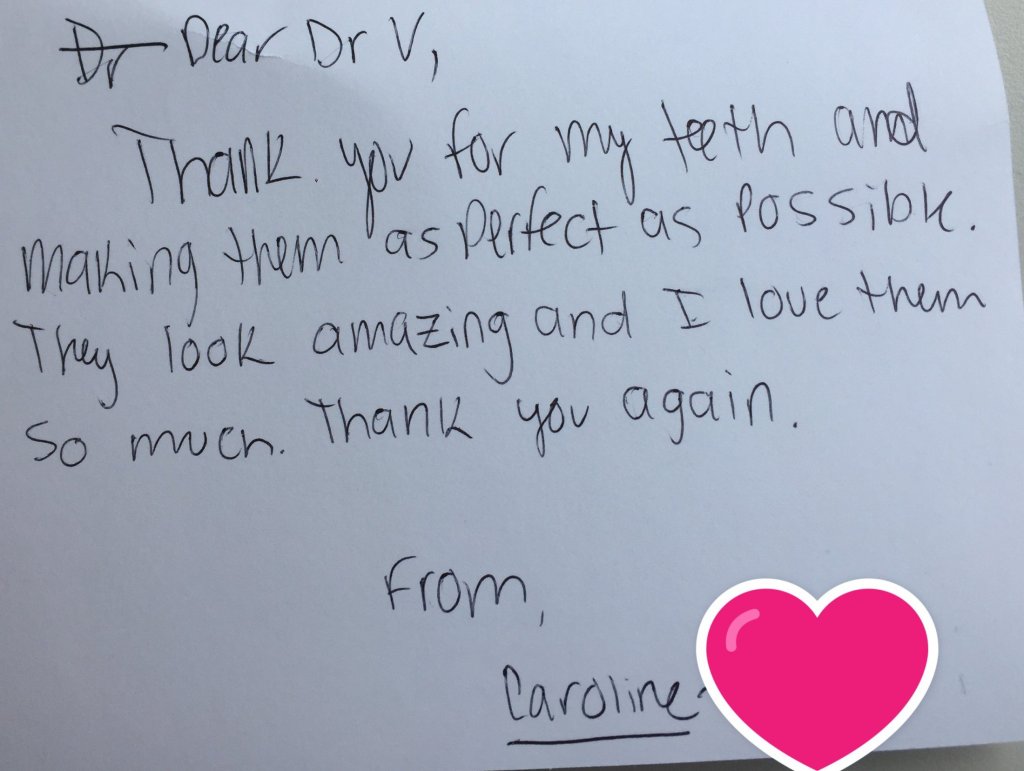 Dr Dear Dr V,
Thank you for my teeth and
making them as perfect as possible.
They look amazing and I love them
so much. Thank you again.
From,
Caroline